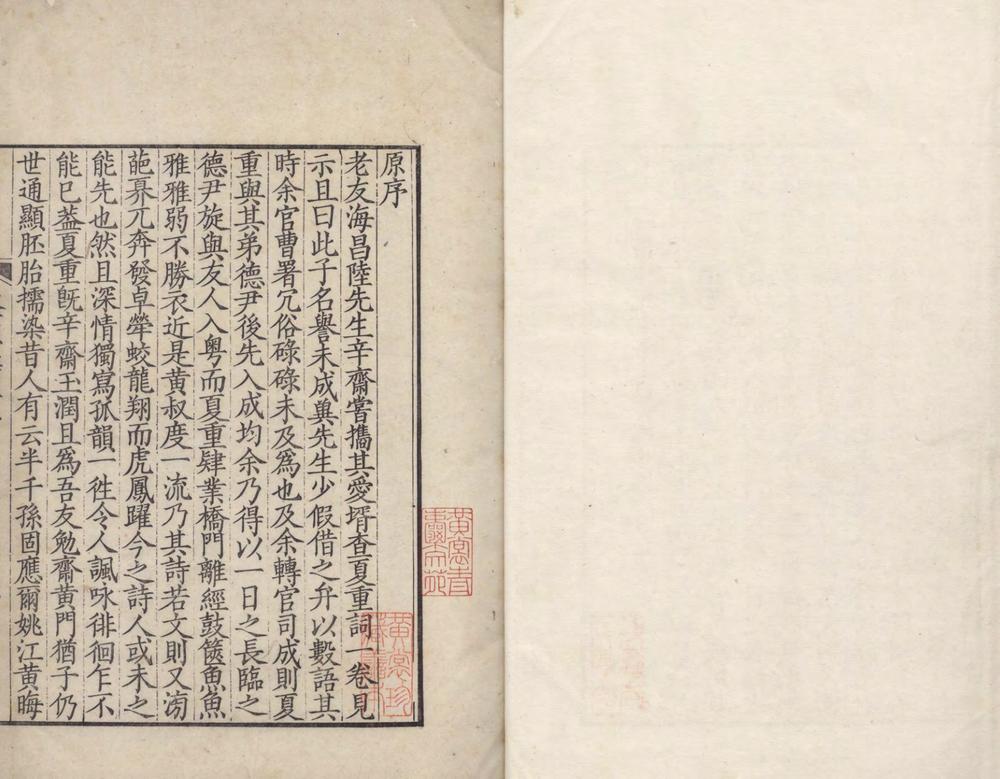 原序
老友海昌陸先生辛齋嘗攜其愛壻查夏重詞一卷見
示且曰此子名譽未成兾先生少假借之弁以數語其
時余官曹署冗俗碌碌未及爲也及余轉官司成則夏
重與其弟德尹後先入成均余乃得以一日之長臨之
德尹旋與友人入粤而夏重肄業橋門離經鼓篋魚魚
雅雅弱不勝衣近是黄叔度一流乃其詩若文則又汸
葩奡兀奔發卓犖蛟龍翔而虎鳳躍今之詩人或未之
能先也然且深情獨寫孤韻一徃令人諷咏徘徊乍不
能已葢夏重旣辛齋玉潤且爲吾友勉齋黄門猶子仍
世通顯胚胎擩染昔人有云半千孫固應爾姚江黄晦